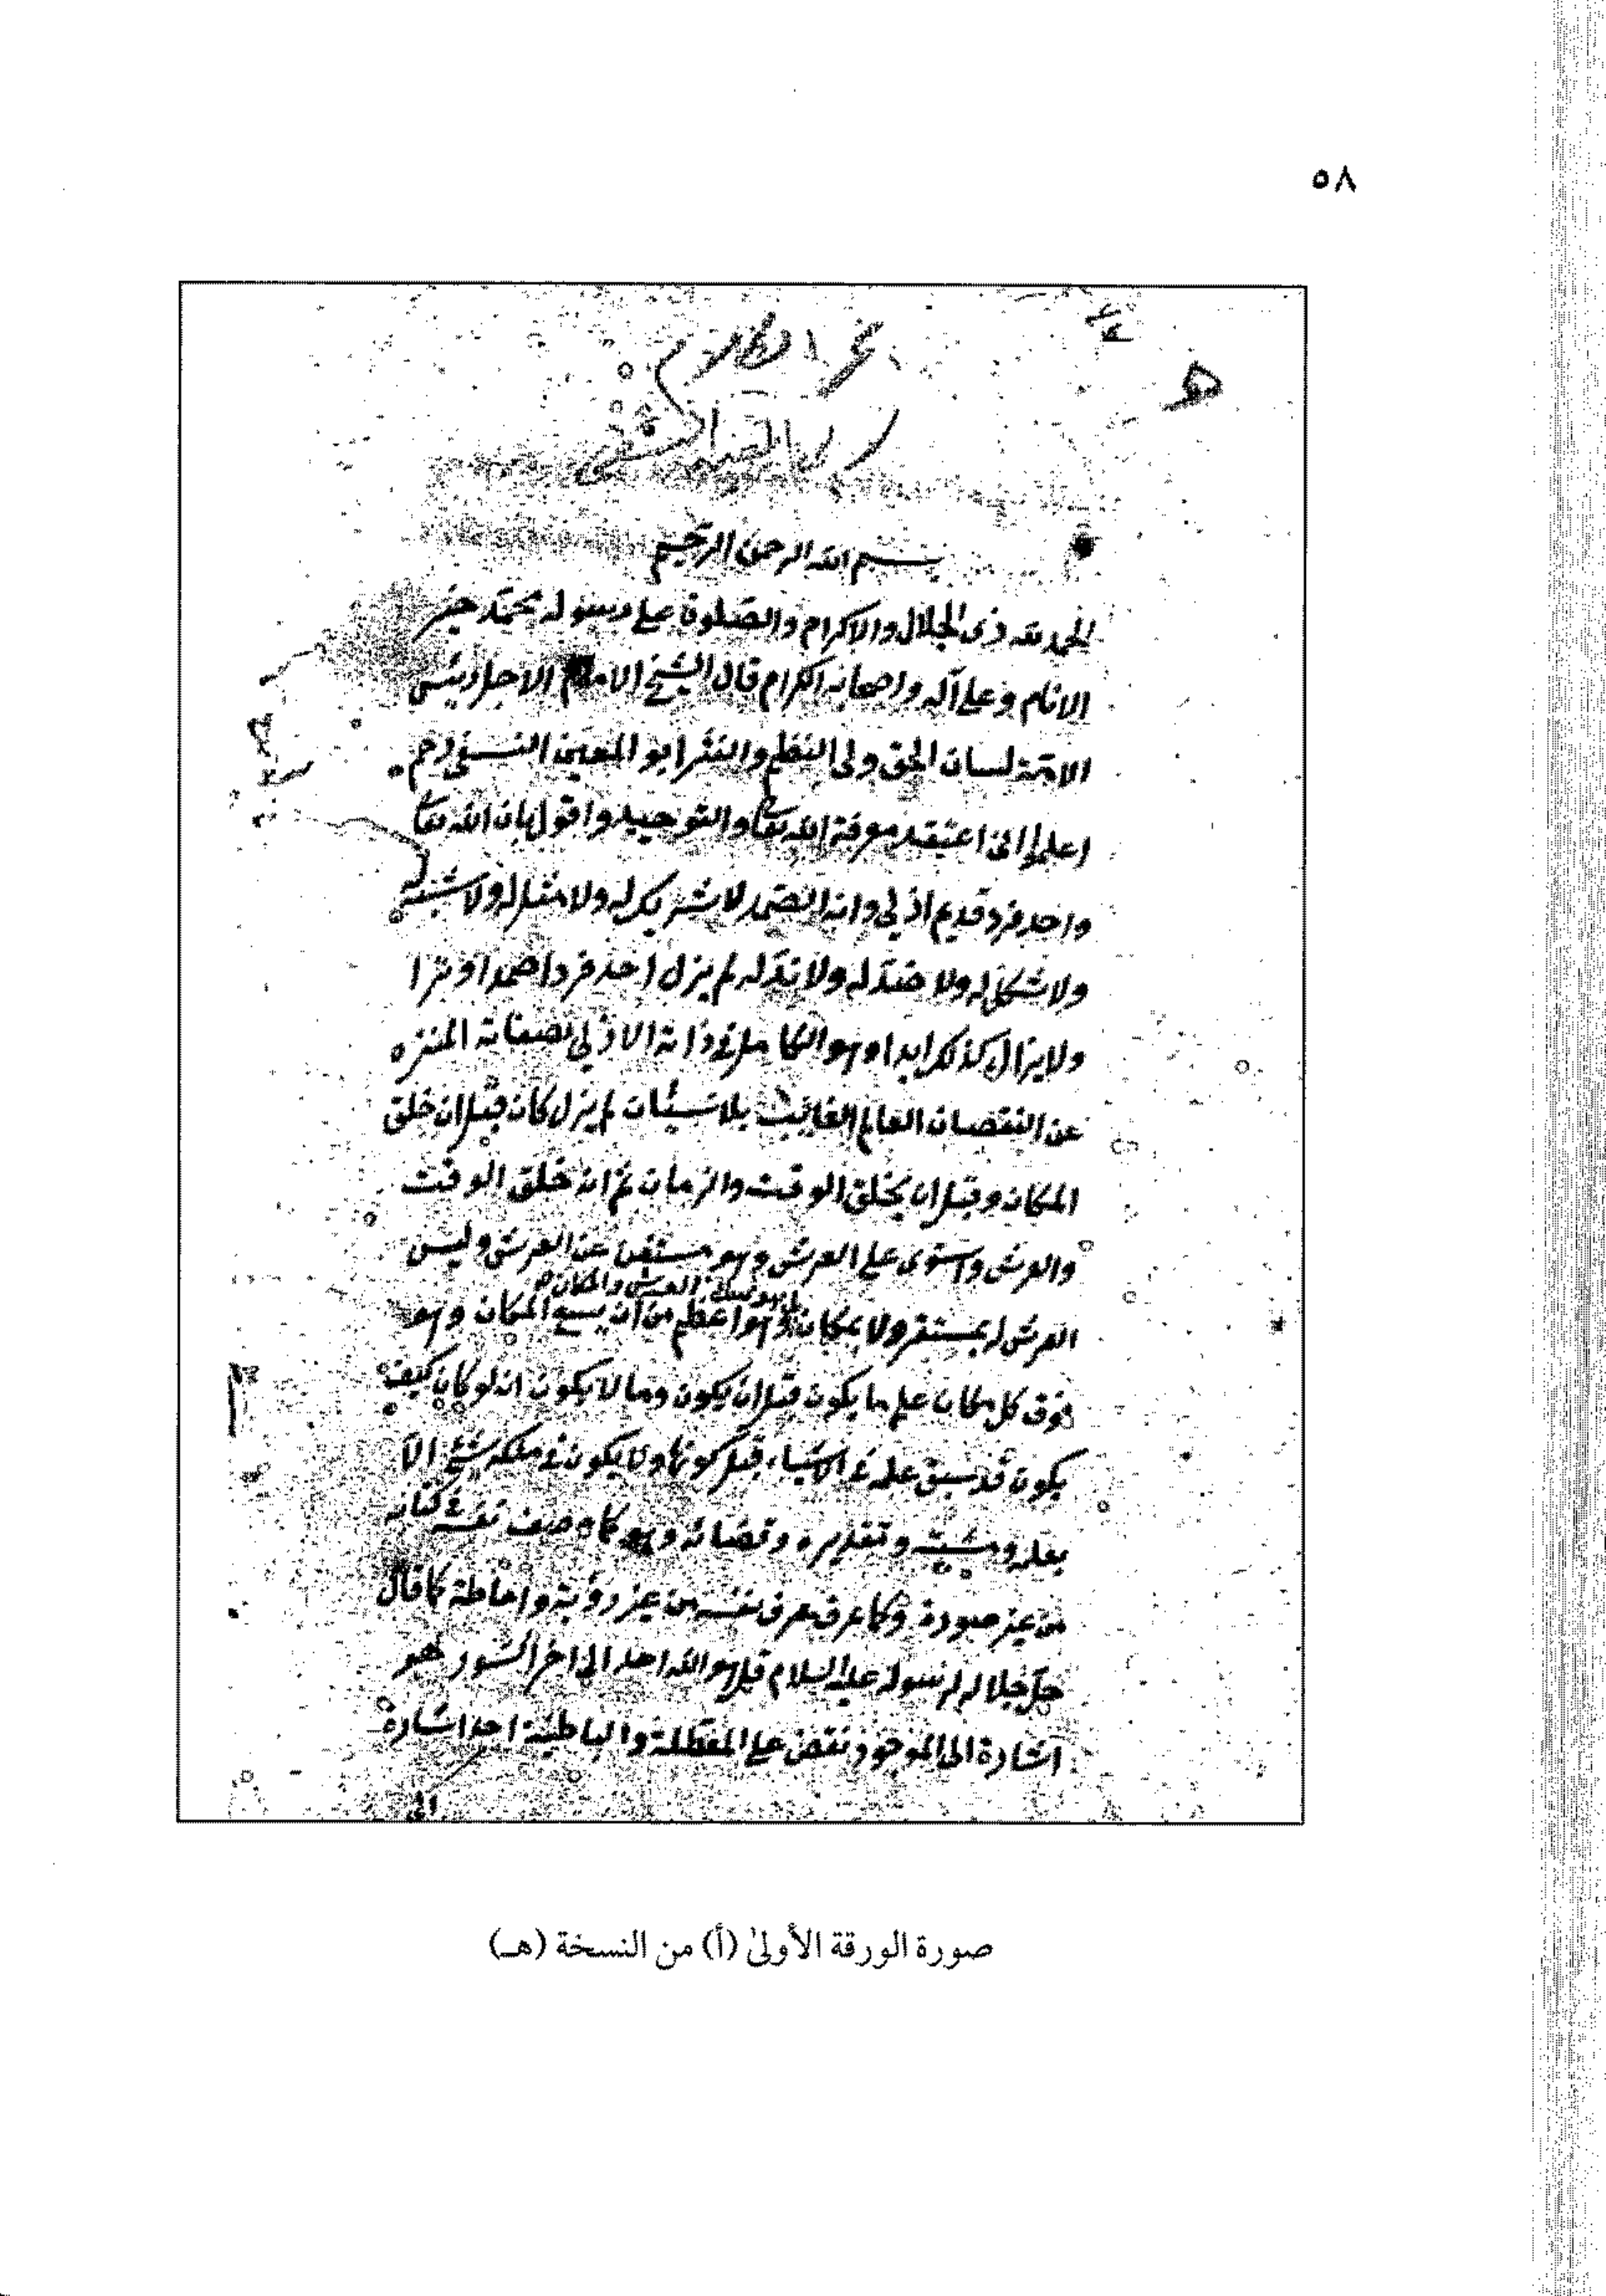 ٥٨
بحر الكلام
هـ
لابى المعين النسفى
بسم الله الرحمن الرحيم
الحمد لله ذى الجلال والاكرام والصلوة على رسوله محمد خير
الانام وعلى آله واصحابه الكرام قال الشيخ الامام الاجل رئيس
الائمة لسان الحق ولى النظم والنثر ابو المعين النسفى رحم
اعلم انى اعتقد معرفة الله تعا والتوحيد واقول بان الله تعا
واحد فرد قديم ازلى وانه الصمد لا شريك له ولا مثل له ولا شبه له
ولا شكل له ولا ضد له ولا ند له لم يزل احد فردا صمدا وترا
ولا يزال كذلك ابدا وهو الكامل فى ذاته الازلى بصفاته المنزه
عن النقصان العالم الغائب بلا نسيان لم يزل كان قبل ان خلق
المكان وقبل ان يخلق الوقت والزمان ثم انه خلق الوقت
والعرش واستوى على العرش وهو مستغن عن العرش وليس
العرش له بمستقر ولا بمكان وهو اعظم من ان يسع المكان وهو
العرش والمكان
فوق كل مكان علم ما يكون قبل ان يكون وما لا يكون ان لو كان كيف
يكون قد سبق علمه فى الاشياء قبل كونها ولا يكون فى ملكه شئ الا
بعلمه ومشيته وتقديره وقضائه وهو كما وصف نفسه فى كتابه
من غير وكما عرف نفسه من غير رؤية واحاطة كما قال
جل جلاله لرسوله عليه السلام قل هو الله احد الى اخر السور هو
اشارة الى الموجود نقض على المعطلة والباطنية احد اشارة
الى
صورة الورقة الأولىٰ (أ) من النسخة (هـ)